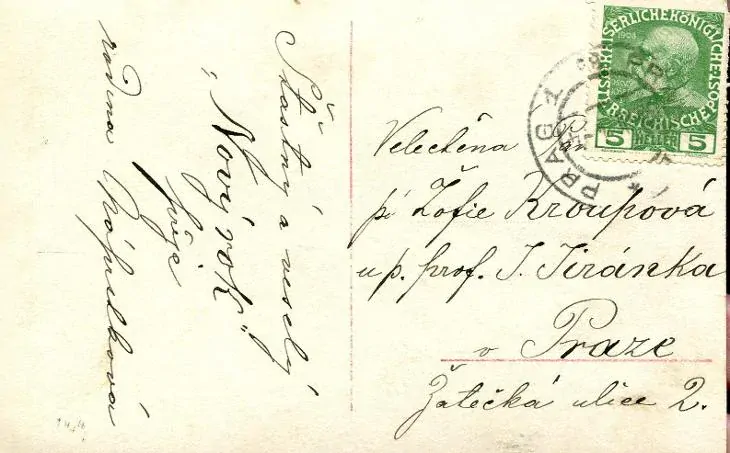 Šťastný a veselý
"Nový rok"
přeje
rodina
Velectěná Paní
pí Žofie Kroupová
u p. prof. J. Jiránka
v Praze
Žatecká ulice 2.
KAISERLICHE KÖNIGLICHE
ÖSTERREICHISCHE POST
1908
5 HELLER 5
PRAG 1